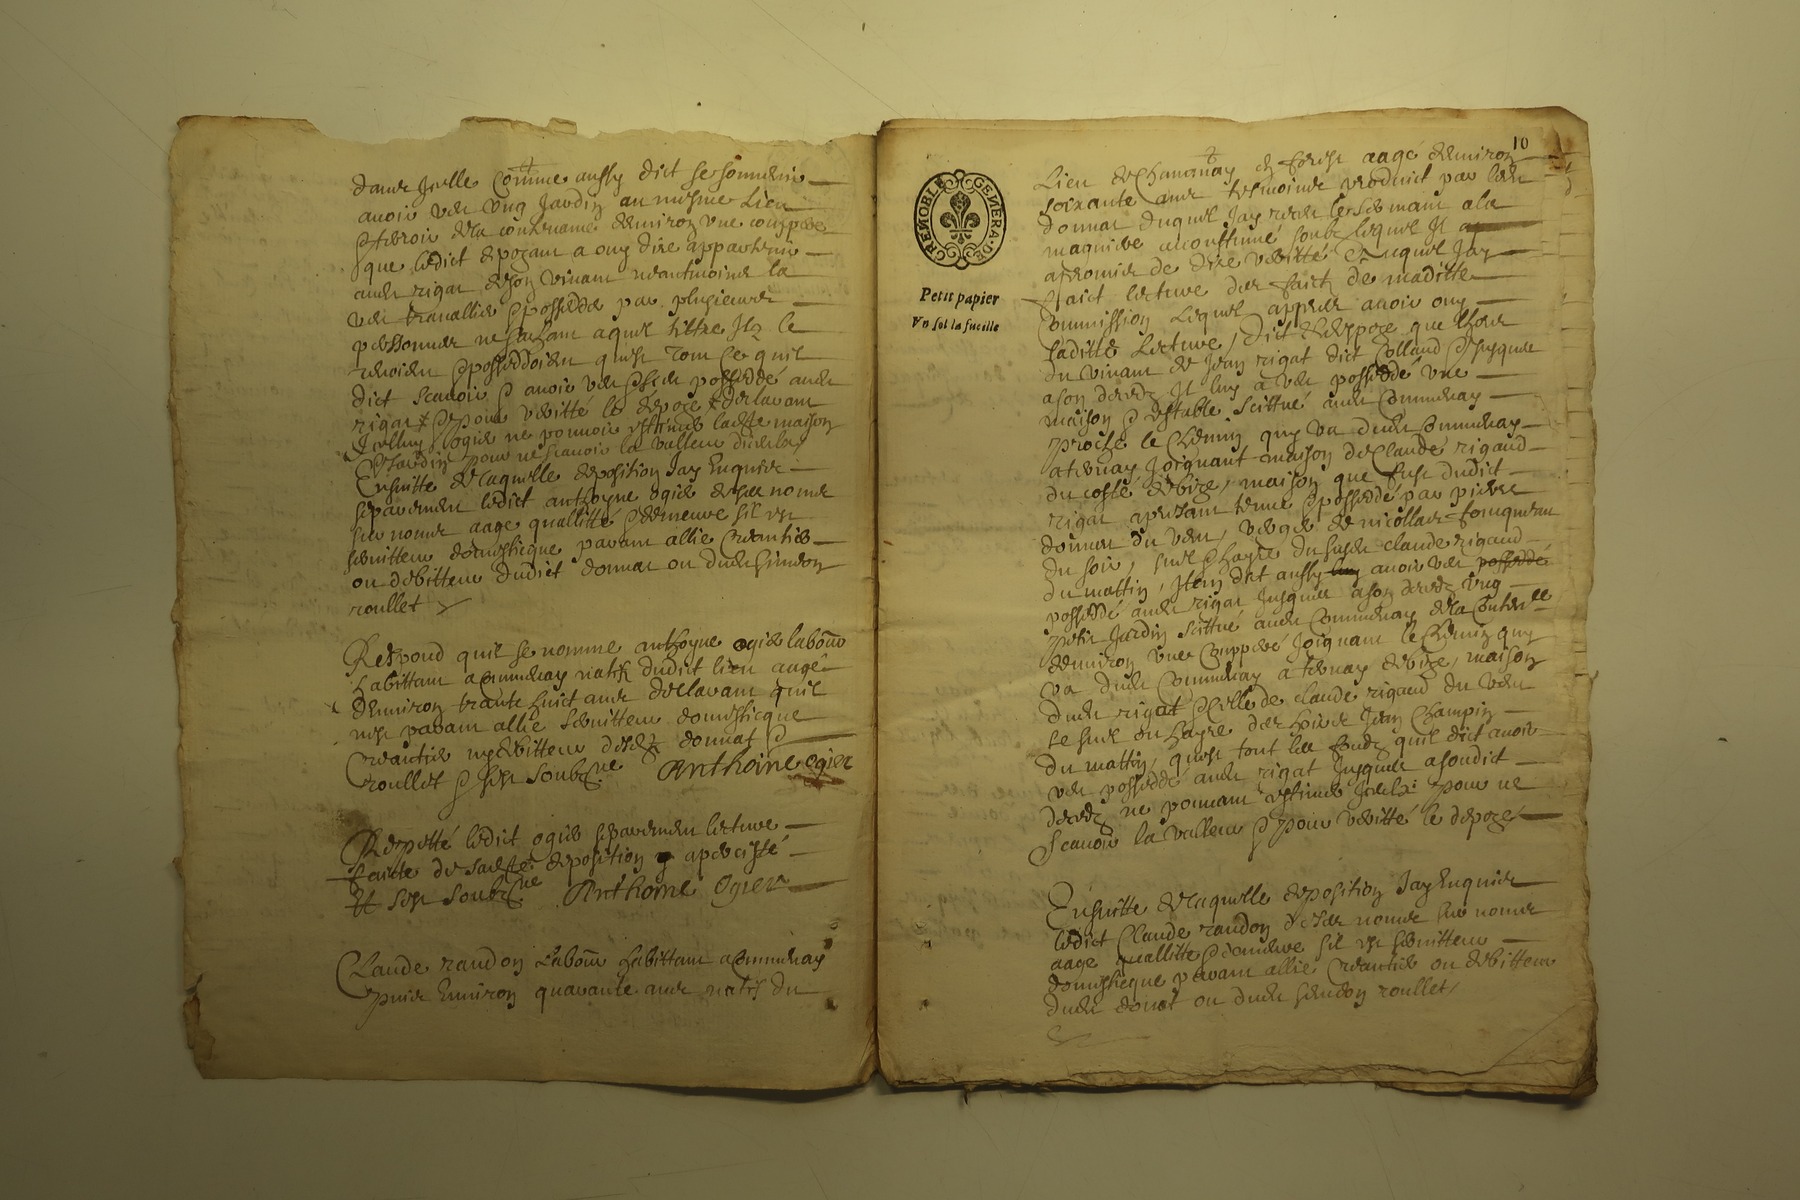 dans Icelle Comme aussy dict se souvenir
avoir veu ung Jardin au mesme Lieu
& terroir de la contenance denviron une couppée
que ledict depozant a ouy dire appartenir
audit rigat & son vivant neantmoins la
veu travaillier & posseder par plusieurs
personnes ne sachant a quel tiltre Ilz le
tenoient & possedoient quest tout ce quil
dict scavoir & avoir veu & sceu possedé audit
rigat & pour verité la depozé & declarant
Icelluy ogier ne pouvoir estimer ladite maison
& Jardin pour ne scavoir la valleur dicelux
Ensuitte de laquelle deposition Jay Enquis
separement ledict anthoyne ogier de ses noms
surnoms aage quallitté & demeure sil est
serviteur domesticque parant allié creantier
ou debitteur dudict donnat ou dudit simeon
roullet
Respond quil se nomme anthoyne ogier labour
habittant a Communay natif dudict lieu aagé
denviron trante huict ans declarant quil
nest parant allié serviteur domesticque
creantier ny debitteur desdictz donnat &
roullet & sest soubzne Anthoine ogier
Repetté ledict ogier separement lecture
faitte de sadite deposition y a percisté
Et sest soubzne Anthoine Ogier
Claude randon Labour habittant a Communay
puis Environ quarante ans natif du
10
GENERA·DE GRENOBLE
Petit papier
Vn sol la fueille
Lieu de Chamanay en forest aagé denviron
soixante ans tesmoings produict par ledit
donnat duquel Jay receu le serment a la
maniere accoustumé soubz lequel Il a
apromis de dire veritté & auquel Jay
faict lecture des faictz de maditte
Commission Lequel appres avoir ouy
laditte Lecture, Dict & depoze que lhors
du vivant de Jean rigat dict Colland & Jusques
a son deces Il luy a veu possedé une
maison & estable scittué audit Communay
proche le Chemin quy va dudit Communay
a ternay Joignant maison de Claude rigaud
du costé de bize, maison que fust dudict
rigat apresant tenue & possedé par pierre
donnat du vent, verger de nicollas fouqueran
du soir, suel & hayre du susdit claude rigaud
du mattin, Item dict aussy avoir veu possedé
possedé audit rigat Jusques a son deces ung
petit Jardin scittué audit Communay de la Contenlle
denviron une Couppée Joignant le Chemin quy
va dudit Communay a ternay de bize, maison
dudit rigat & celle de claude rigaud du vent
le suel ou hayre des hoirs Jean Champin
du mattin, quest tout les fondz quil dict avoir
veu possedé audit rigat Jusques a sondict
decedz ne pouvant estimer Iceulx pour ne
scavoir la valleur & pour veritté le depozé
Ensuitte de laquelle deposition Jay Enquis
ledict Claude randon de ses noms surnoms
aage quallitté & demeure sil est serviteur
domesticque parant allié creantier ou debitteur
dudit donat ou dudit simeon roullet